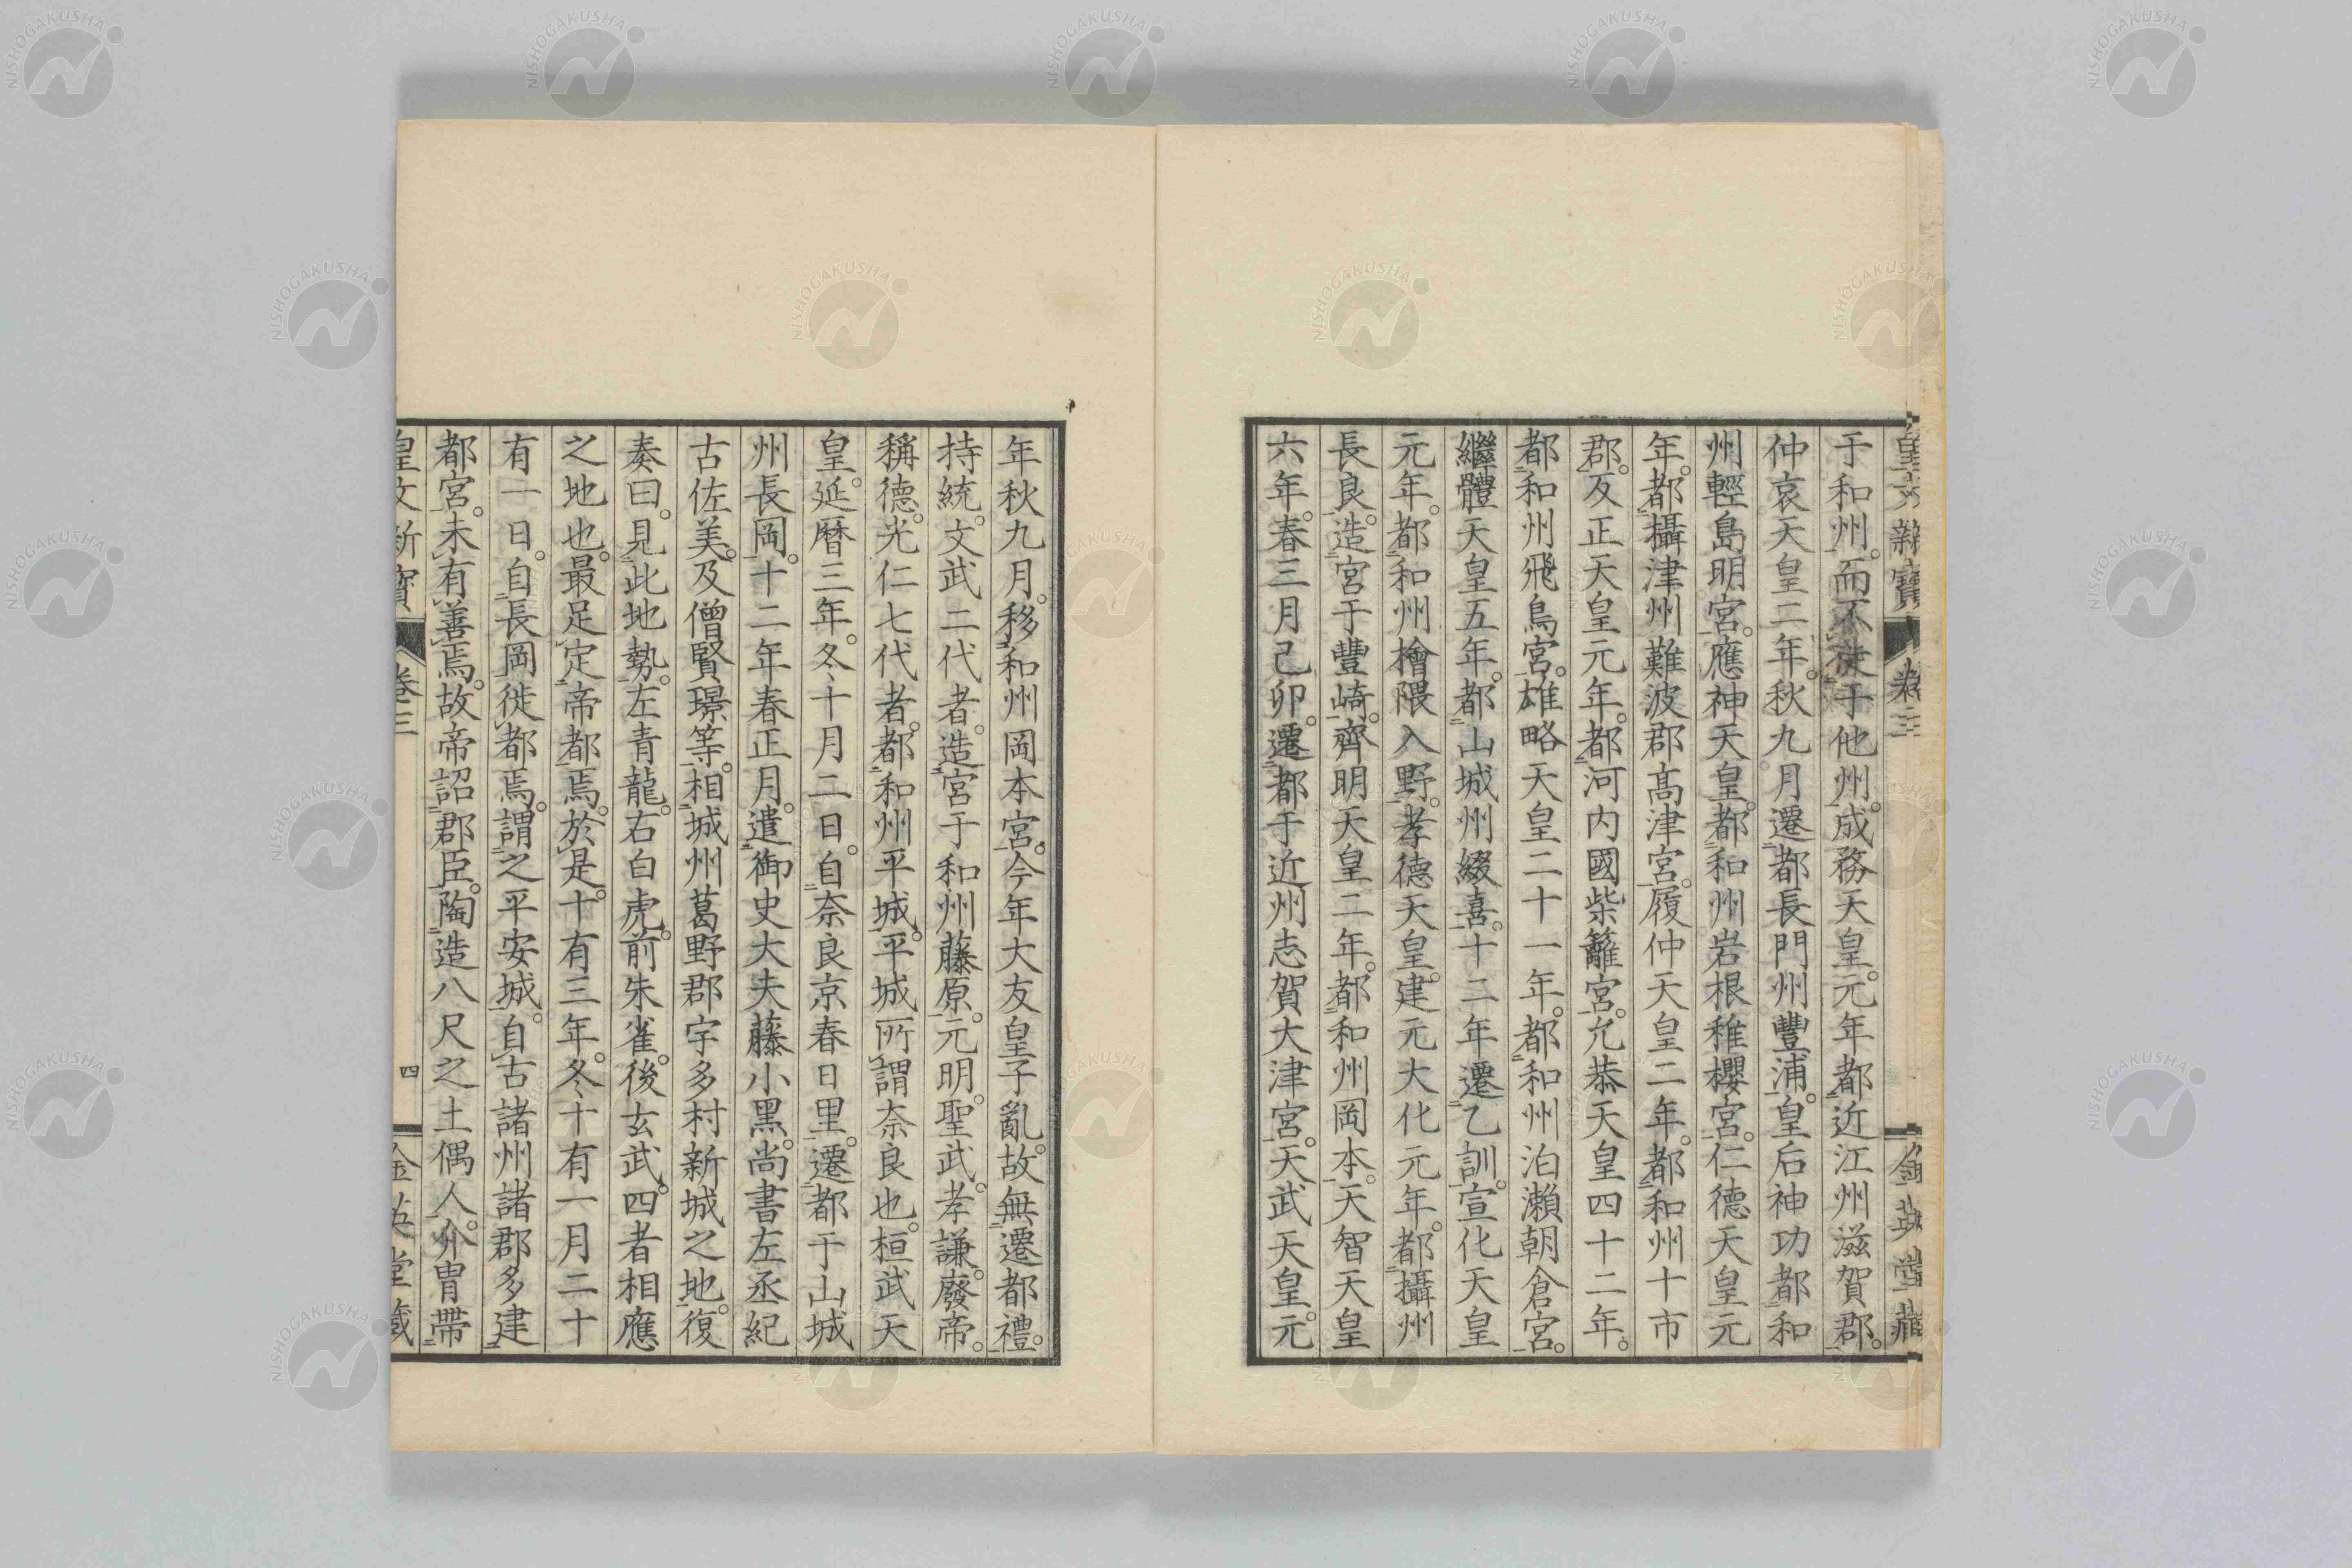 皇文新寶 卷三 金英堂藏
于和州。而不徒于他州。成務天皇。元年都近江州滋賀郡。
仲哀天皇二年。秋九月遷都長門州豐浦。皇后神功都和
州輕島明宮。應神天皇。都和州岩根稚櫻宮。仁德天皇元
年。都攝津州難波郡高津宮。履仲天皇二年。都和州十市
郡。反正天皇元年。都河内國柴籬宮。允恭天皇四十二年。
都和州飛鳥宮。雄略天皇二十一年。都和州泊瀬朝倉宮。
繼體天皇五年。都山城州綴喜。十二年遷乙訓。宣化天皇
元年。都和州檜隈入野。孝德天皇。建元大化元年。都攝州
長良。造宮于豐崎。齊明天皇二年。都和州岡本。天智天皇
六年。春三月己卯。遷都于近州志賀大津宮。天武天皇。元
年秋九月。移和州岡本宮。今年大友皇子亂。故無遷都禮。
持統。文武二代者。造宮于和州藤原。元明。聖武。孝謙。廢帝。
稱德。光仁七代者。都和州平城。平城所謂奈良也。桓武天
皇。延暦三年。冬十月二日。自奈良京春日里。遷都于山城
州長岡。十二年春正月。遣御史大夫藤小黑。尚書左丞紀
古佐美。及僧賢璟等。相城州葛野郡宇多村新城之地。復
奏曰。見此地勢。左青龍。右白虎。前朱雀。後玄武。四者相應
之地也。最足定帝都焉。於是。十有三年。冬十有一月二十
有一日。自長岡徙都焉。謂之平安城。自古諸州諸郡多建
都宮。未有善焉。故帝詔郡臣。陶造八尺之土偶人。介冑帶
皇文新寶 卷三 四 金英堂藏